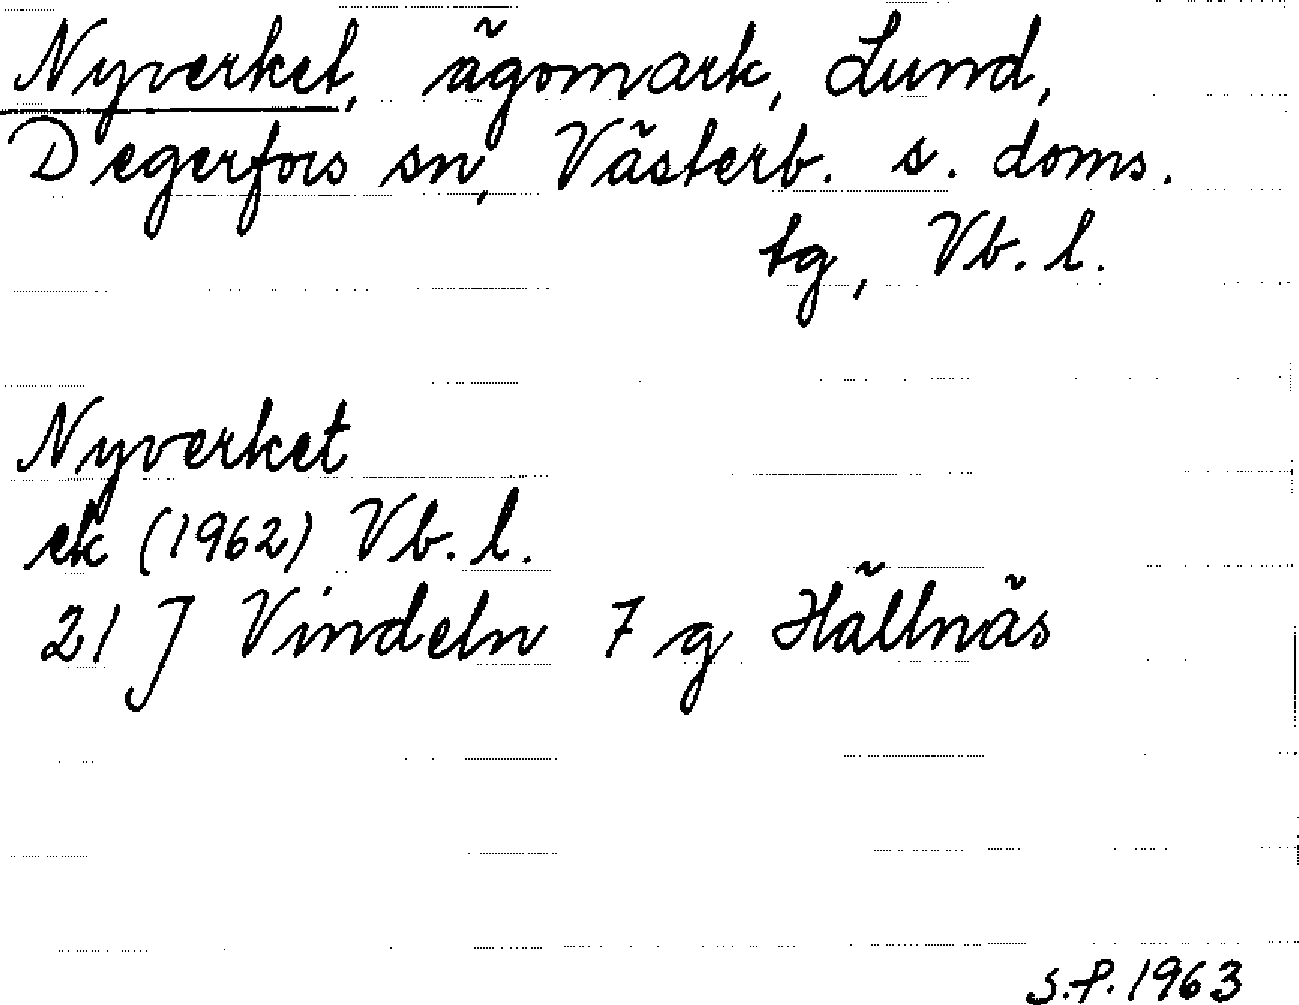 Nyverket, ägomark, Lund,
Degerfors sn, Västerb. s. doms.
tg, Vb. l.
Nyverket
ek (1962) Vb. l.
21 J Vindeln 7 g Hällnäs
S.P. 1963